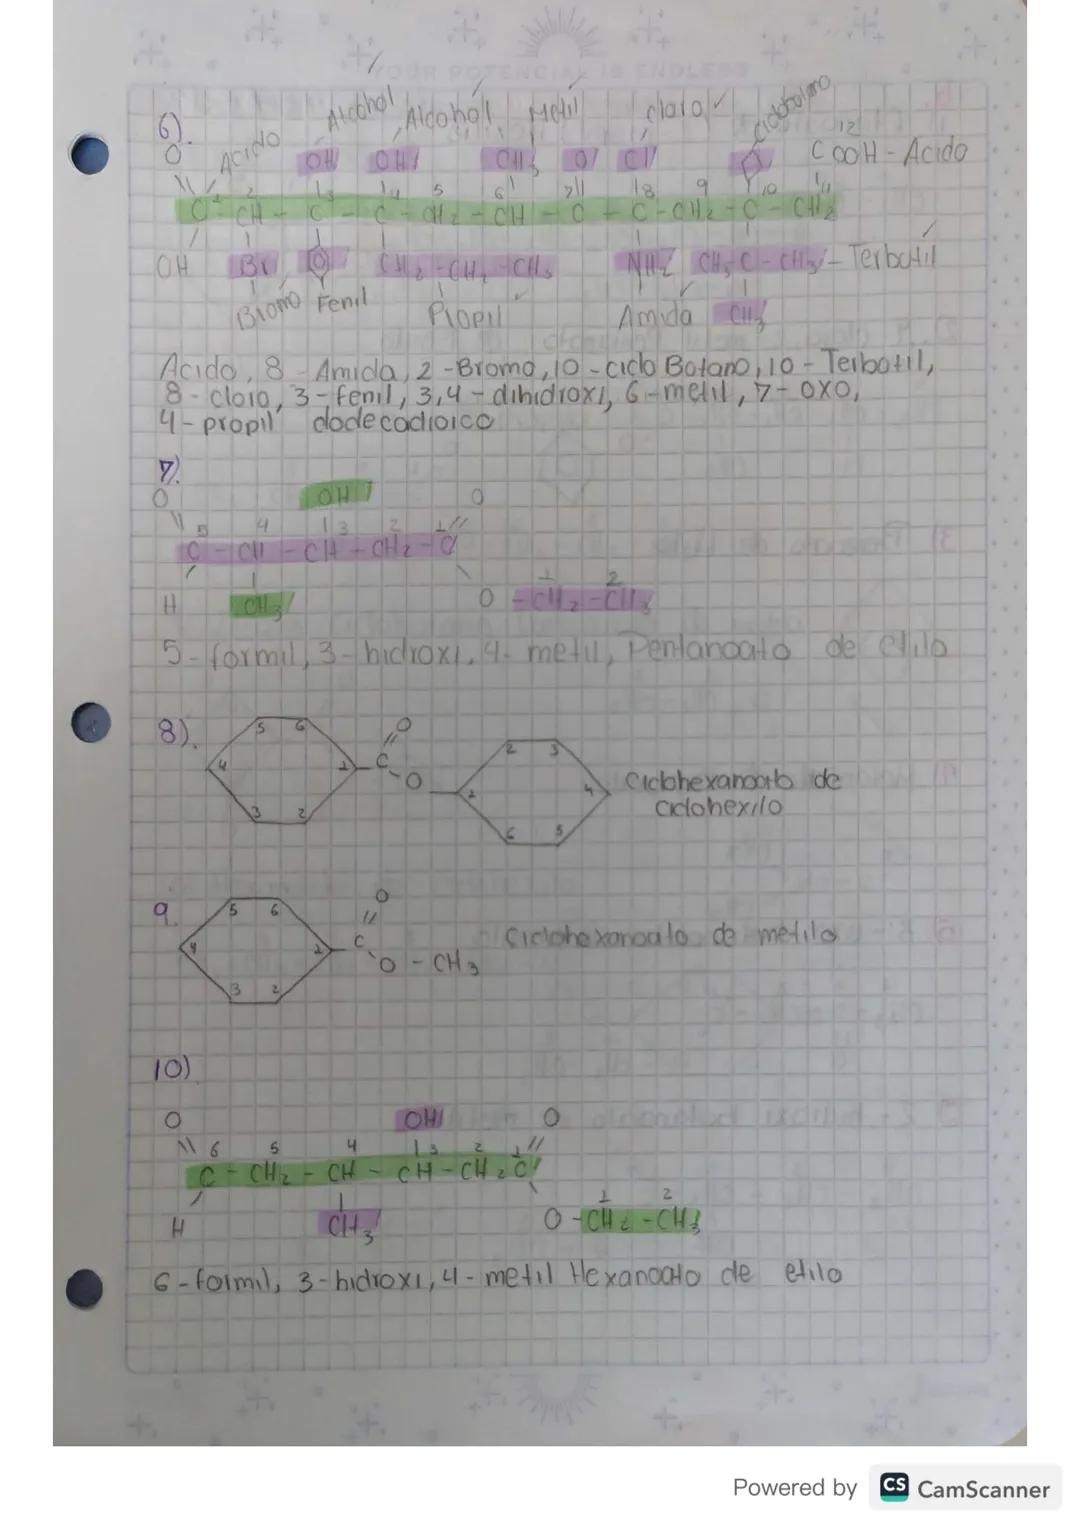 YOUR POTENCIAL IS ENDLESS
6).
Acido Alcohol Alcohol Metil cloro ciclobotano
12
O OH OH CH3 O Cl COOH - Acido
1 2 3 4 5 6 7 8 9 10 11
C - CH - C - C - CH2 - CH - C - C - CH2 - C - CH2
OH Br CH2 - CH2 - CH3 NH2 CH3 C - CH3 - Terbutil
Bromo Fenil Propil Amida CH3
Acido, 8 - Amida, 2 - Bromo, 10 - ciclo Botano, 10 - Terbotil,
8 - cloro, 3 - fenil, 3,4 - dihidroxi, 6 - metil, 7 - oxo,
4 - propil dodecadioico
7).
O OH O
5 4 3 2 1
C - CH - CH - CH2 - C
1 2
H CH3 O - CH2 - CH3
5 - formil, 3 - hidroxi, 4 - metil, Pentanoato de etilo
8).
5 6 O
4 1 C
3 2 O
2 3
1 4
6 5
Ciclohexanoato de
ciclohexilo
9.
5 6 O
4 1 C
3 2 O - CH3
Ciclohexanoato de metilo
10)
O OH O
6 5 4 3 2 1
C - CH2 - CH - CH - CH2 C
1 2
H CH3 O - CH2 - CH3
6 - formil, 3 - hidroxi, 4 - metil Hexanoato de etilo
Powered by CS CamScanner